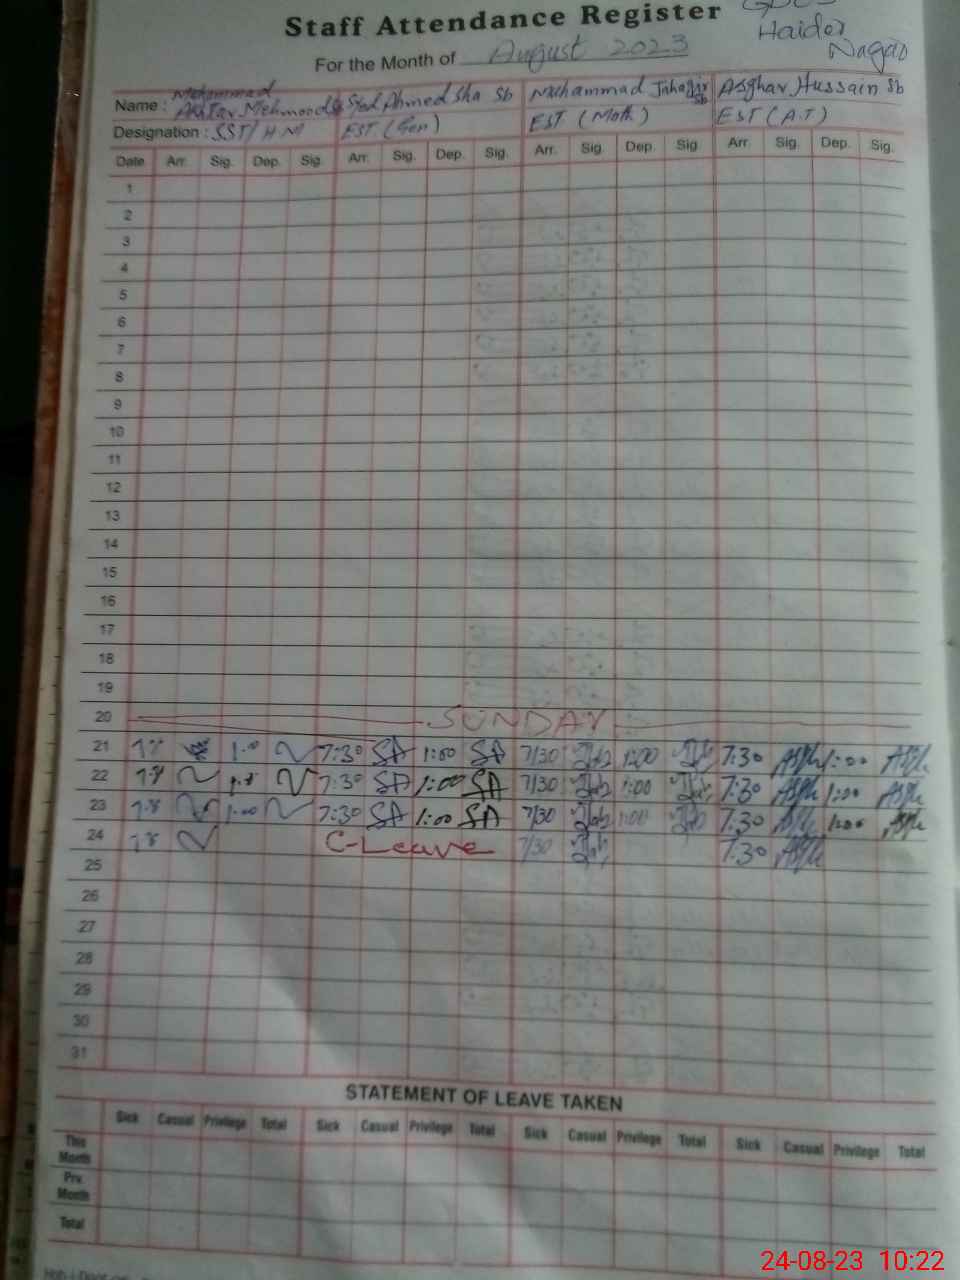 Staff Attendance Register
Haider
Nagar
For the Month of August 2023
Name : Mohammad Akhtar Mehmood Sb Syed Ahmed Sha Sb Muhammad Jahagir Sb Asghar Hussain Sb
Designation : SST/HM EST (Gen) EST (Math) EST (A.T)
Date Arr. Sig. Dep. Sig. Arr. Sig. Dep. Sig. Arr. Sig. Dep. Sig. Arr. Sig. Dep. Sig.
1
2
3
4
5
6
7
8
9
10
11
12
13
14
15
16
17
18
19
20 SUNDAY
21 7:30 SA 1:00 SA 7/30 1:00 7:30 1:00
22 7:30 SA 1:00 SA 7/30 1:00 7:30 1:00
23 1:00 7:30 SA 1:00 SA 7/30 1:00 7:30 1:00
24 C-Leave 7/30 7:30
25
26
27
28
29
30
31
STATEMENT OF LEAVE TAKEN
Sick Casual Privilege Total Sick Casual Privilege Total Sick Casual Privilege Total Sick Casual Privilege Total
This Month
Prv Month
Total
24-08-23 10:22